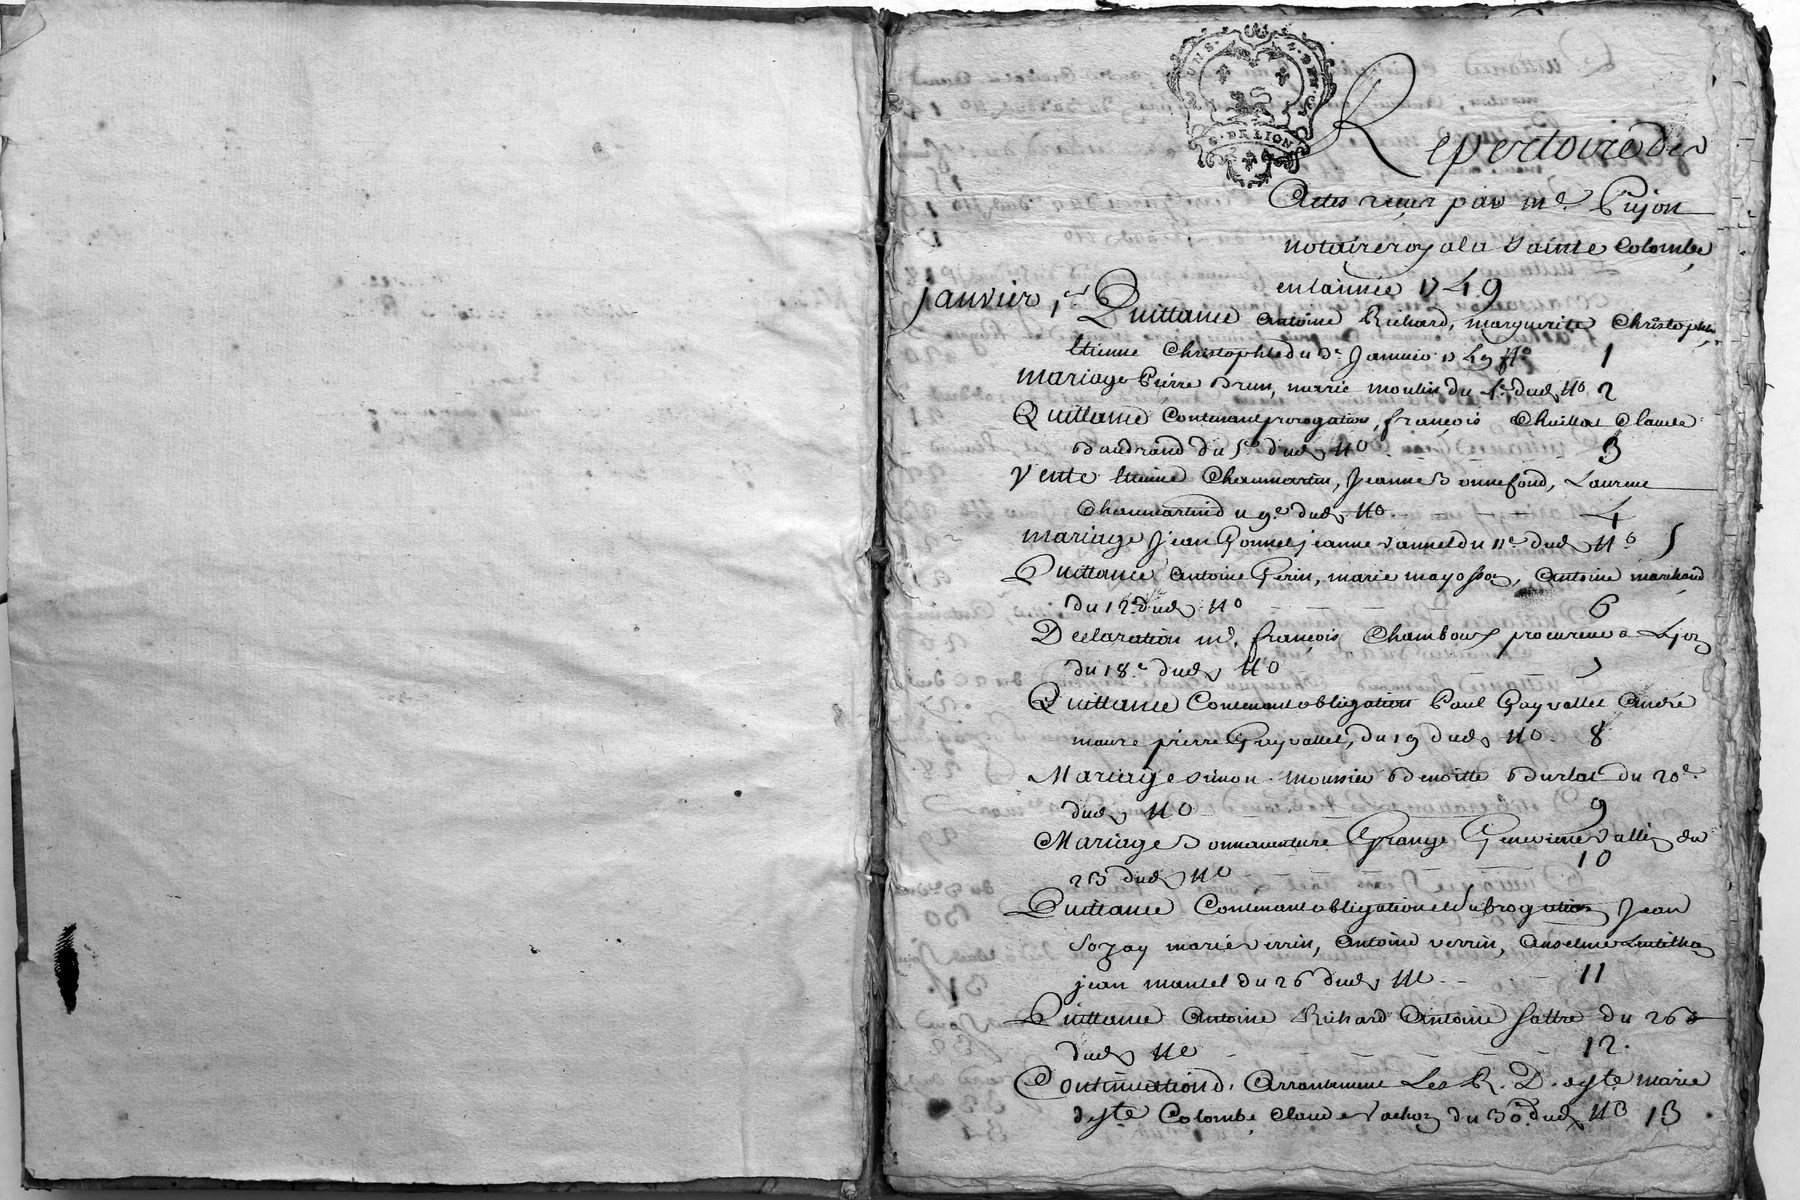 UNS. 4. DEN. G
G. DE LION
Repertoire des
Actes reçus par me. Pujon
notaire royal a Sainte Colombe
en lannée 1749
janvier, 1er Quittance antoine Richard, marguerite Christophle
Etienne Christophle du 3e Janvier 1749 No 1
mariage Pierre Brun, marie moulin du 4e dud No 2
Quittance Contenant prorogation, françois Chuillat Claude
Baudrand du 5e dud No 3
Vente Etienne Chaumartin, Jeanne Bonnefond, Laurent
Chaumartin du 9e dud No 4
mariage Jean Gonnet jeanne vannel du 11e dud No 5
Quittance antoine Gerin, marie, antoine marchand
du 12e dud No 6
Declaration me. françois Chamboux procureur a Lyon
du 18e dud No 7
Quittance Contenant obligation Paul Gayvallet André
maure pierre Guyvallet, du 19 dud No 8
Mariage simon moussier Benoitte Burlat du 20e
dud No 9
Mariage Bonnaventure Grange Genevieve Vallin du
23 dud No 10
Quittance Contenant obligation et subrogation Jean
Sozay marie verrin, antoine verrin, anselme
jean mantel du 26 dud No 11
Quittance antoine Richard antoine fattre du 26e
dud No 12.
Continuation d. Arrentement Les R. D. de ste marie
de ste Colombe Claude Vachon du 30e dud No 13